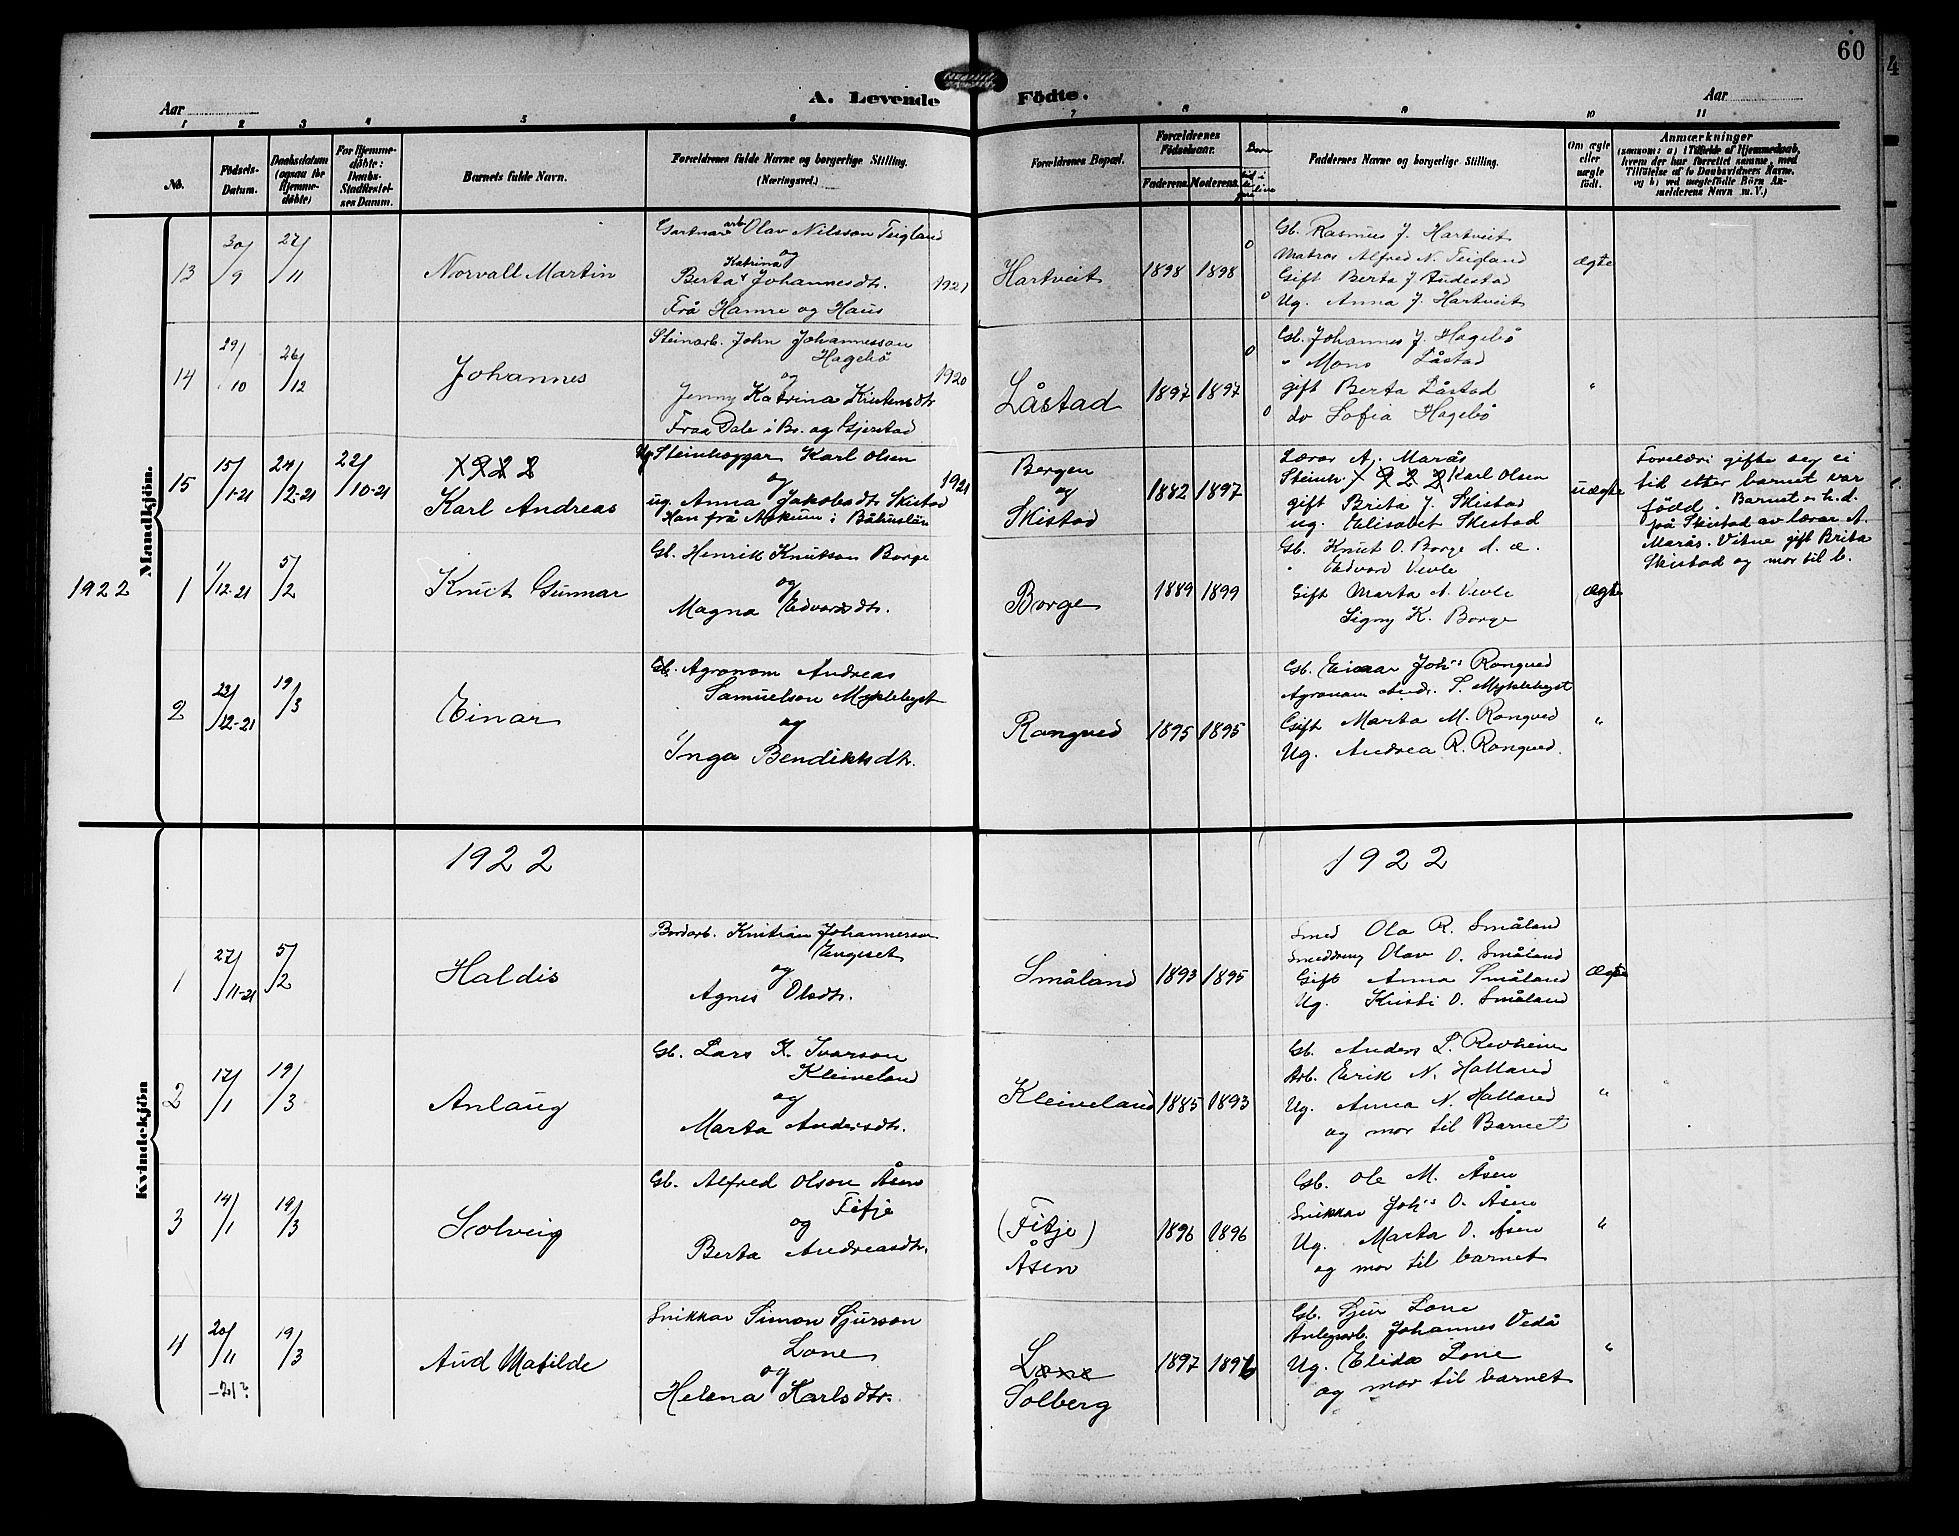 60
A. Levende Födte.
Aar
Aar
1 2 3 4 5 6 7 8 9 10 11
No.
Födsels-Datum.
Daabsdatum (ogsaa for Hjemme-döbte)
For Hjemme-döbte: Daabs-Stadfæstel-ses Datum.
Barnets fulde Navn.
Forældrenes fulde Navne og borgerlige Stilling.
(Næringsvei.)
Forældrenes Bopæl.
Forældrenes Födselsaar.
Faderens. Moderens.
Born
Faddernes Navne og borgerlige Stilling.
Om ægte eller uægte födt.
Anmærkninger
(saasom: a) i Tilfælde af Hjemmedaab,
hvem der har forrettet samme, med
Tilföielse af to Daabsvidners Navne,
og b) ved uægtefödte Börn An-
melderens Navn m. V.)
Mandkjön.
13
30/9
27/11
Norvall Martin
Gartnararb Olav Nilsson Teigland
og
Berta Katrina Johannesdtr.
Frå Hamre og Haus
1921
Hartveit
1898 1898
0
0
Gb. Rasmus J. Hartveit
Matros Alfred N. Teigland
Gift Berta J. Audestad
Ug. Anna J. Hartveit
ægte
14
29/10
26/12
Johannes
Steinarb. John Johannesson
Hagebö
og
Jenny Katrina Kristensdtr
Fraa Dale i Br. og Gjerstad
1920
Låstad
1897 1897
0
0
Gb. Johannes J. Hagebö
" Mons Låstad
gift Berta Låstad
do Sofia Hagebö
"
15
15/1-21
24/12-21
22/10-21
1922
Karl Andreas
Ug Steinhoggar Karl Olsen
og
ug. Anna Jakobsdtr Skistad
Han frå Askum i Båhuslän
1921
Bergen
og
Skistad
1882 1897
Lærar A. Marås
Steinh. 1922 Karl Olsen
gift Brita J. Skistad
ug. Elisabet Skistad
uægte
Foreldri gifte seg ei
tid etter barnet var
född. Barnet er h.d.
på Skistad av lærar A.
Marås. Vitne gift Brita
Skistad og mor til b.
1922
1
1/12-21
5/2
Knut Gunnar
Gb. Henrik Knutson Borge
og
Magna Edvardsdtr.
Borge
1889 1899
Gb. Knut O. Borge d. æ.
" Edvard Vevle
Gift Marta A. Vevle
Signy K. Borge
ægte
2
22/12-21
19/3
Einar
Gb. Agronom Andreas
Samuelson Myklebyst
og
Inga Bendiktsdtr.
Rongved
1895 1895
Gb. Einar Johs Rongved
Agronom Andr. S. Myklebyst
Gift Marta M. Rongved
Ug. Andrea R. Rongved.
"
1922
1922
Kvindekjön
1
27/11-21
5/2
Haldis
Bordarb. Kristian Johannesson
Engeset
og
Agnes Olsdtr.
Småland
1893 1895
Smed Ola R. Småland
Smeddreng Olav O. Småland
Gift Anna Småland
Ug. Kristi O. Småland
Ægte
2
17/1
19/3
Anlaug
Gb. Lars K. Ivarson
Kleiveland
og
Marta Andersdtr.
Kleiveland
1885 1893
Gb. Anders L. Revheim
Arb. Eirik N. Halland
Ug. Anna N. Halland
og mor til Barnet
"
3
14/1
19/3
Solveig
Gb. Alfred Olson Åsen
Fitje
og
Berta Andreasdtr.
(Fitje)
Åsen
1896 1896
Gb. Ole M. Åsen
Snikkar Johs O. Åsen
Ug. Marta O. Åsen
og mor til barnet
"
4
20/11
-21?
19/3
Aud Matilde
Snikkar Simon Sjurson
Lone
og
Helena Karlsdtr.
Lone
Solberg
1897 1896
Gb. Sjur Lone
Anlegsarb. Johannes Vedå
Ug. Elida Lone
og mor til barnet
"